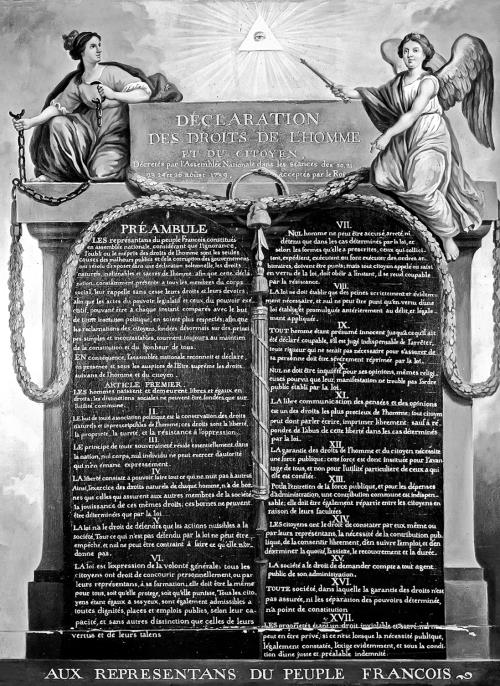 DÉCLARATION
DES DROITS DE L'HOMME
ET DU CITOYEN
Décrétés par l'Assemblée Nationale dans les séances des 20, 21
23, 24 et 26 août 1789, acceptés par le Roi
PRÉAMBULE
LES représentans du peuple Francois, constitués
en assemblée nationale, considérant que l'ignorance,
l'oubli ou le mépris des droits de l'homme sont les seules
causes des malheurs publics et de la corruption des gouvernemens,
ont résolu d'exposer dans une déclaration solemnelle, les droits
naturels, inaliénables et sacrés de l'homme; afin que cette décla-
ration, constamment présente a tous les membres du corps
social, leur rappelle sans cesse leurs droits et leurs devoirs;
afin que les actes du pouvoir législatif et ceux du pouvoir exé-
cutif, pouvant être à chaque instant comparés avec le but
de toute institution politique, en soient plus respectés; afin que
les réclamations des citoyens, fondées désormais sur des princi-
pes simples et incontestables, tournent toujours au maintien
de la constitution et du bonheur de tous.
EN conséquence, l'assemblée nationale reconnoit et déclare,
en présence et sous les auspices de l'Etre suprême les droits
suivans de l'homme et du citoyen.
ARTICLE PREMIER.
LES hommes naissent et demeurent libres et égaux en
droits; les distinctions sociales ne peuvent être fondées que sur
l'utilité commune.
II.
LE but de toute association politique est la conservation des droits
naturels et imprescriptibles de l'homme; ces droits sont la liberté,
la propriété, la sureté, et la résistance à l'oppression.
III.
LE principe de toute souveraineté réside essentiellement dans
la nation, nul corps, nul individu ne peut exercer d'autorité
qui n'en émane expressement.
LA liberté consiste a pouvoir faire tout ce qui ne nuit pas à autrui
Ainsi, l'exercice des droits naturels de chaque homme, n'a de bor-
nes que celles qui assurent aux autres membres de la société
la jouissance de ces mêmes droits; ces bornes ne peuvent
être déterminées que par la loi.
V.
LA loi n'a le droit de défendre que les actions nuisibles a la
société. Tout ce qui n'est pas défendu par la loi ne peut être
empêché, et nul ne peut être contraint à faire ce qu'elle n'or-
donne pas.
VI.
LA loi est l'expression de la volonté générale; tous les
citoyens ont droit de concourir personnellement, ou par
leurs représentans, à sa formation; elle doit être la même
pour tous, soit qu'elle protege, soit qu'elle punisse, Tous les cito-
yens étant égaux à ses yeux, sont également admissibles a
toutes dignités, places et emplois publics, selon leur ca-
pacité, et sans autres distinction que celles de leurs
vertus et de leurs talens
VII.
NUL homme ne peut être accusé, arreté ni
détenu que dans les cas déterminés par la loi, et
selon les formes qu'elle a prescrites, ceux qui sollici-
tent, expédient, exécutent ou font exécuter des ordres ar-
bitraires, doivent être punis; mais tout citoyen appelé ou saisi
en vertu de la loi, doit obéir a l'instant, il se rend coupable
par la résistance.
VIII.
LA loi ne doit établir que des peines strictement et évidem-
ment nécessaire, et nul ne peut être puni qu'en vertu d'une
loi établie et promulguée antérieurement au délit, et légale-
ment appliquée.
IX.
TOUT homme étant présumé innocent jusqu'à ce qu'il ait
été déclaré coupable, s'il est jugé indispensable de l'arrêter,
toute rigueur qui ne serait pas nécessaire pour s'assurer de
sa personne doit être sévèrement réprimée par la loi.
X.
NUL ne doit être inquiété pour ses opinions, mêmes religi-
euses pourvu que leur manifestation ne trouble pas l'ordre
public établi par la loi.
XI.
LA libre communication des pensées et des opinions
est un des droits les plus precieux de l'homme; tout citoyen
peut donc parler écrire, imprimer librement, sauf à ré-
pondre de l'abus de cette liberté dans les cas déterminés
par la loi.
XII.
LA garantie des droits de l'homme et du citoyen nécessite
une force publique; cette force est donc instituée pour l'avan-
tage de tous, et non pour l'utilité particuliere de ceux a qui
elle est confiée.
XIII.
Pour l'entretien de la force publique, et pour les dépenses
d'administration, une contribution commune est indispen-
sable; elle doit être également répartie entre les citoyens en
raison de leurs facultées
XIV.
LES citoyens ont le droit de constater par eux même ou
par leurs représentans, la nécessité de la contribution pub-
lique, de la consentir librement, d'en suivre l'emploi, et d'en
déterminer la quotité, l'assiette, le recouvrement et la durée.
XV.
LA société a le droit de demander compte a tout agent
public de son administration.
XVI.
TOUTE société, dans laquelle la garantie des droits n'est
pas assurée, ni les séparation des pouvoirs déterminée,
n'a point de constitution
XVII.
LES proprietés étant un droit inviolable et sacré, nul ne
peut en être privé, si ce n'est lorsque la nécessité publique,
légalement constatée, l'exige évidemment, et sous la condi-
tion d'une juste et préalable indemnité.
AUX REPRESENTANS DU PEUPLE FRANCOIS